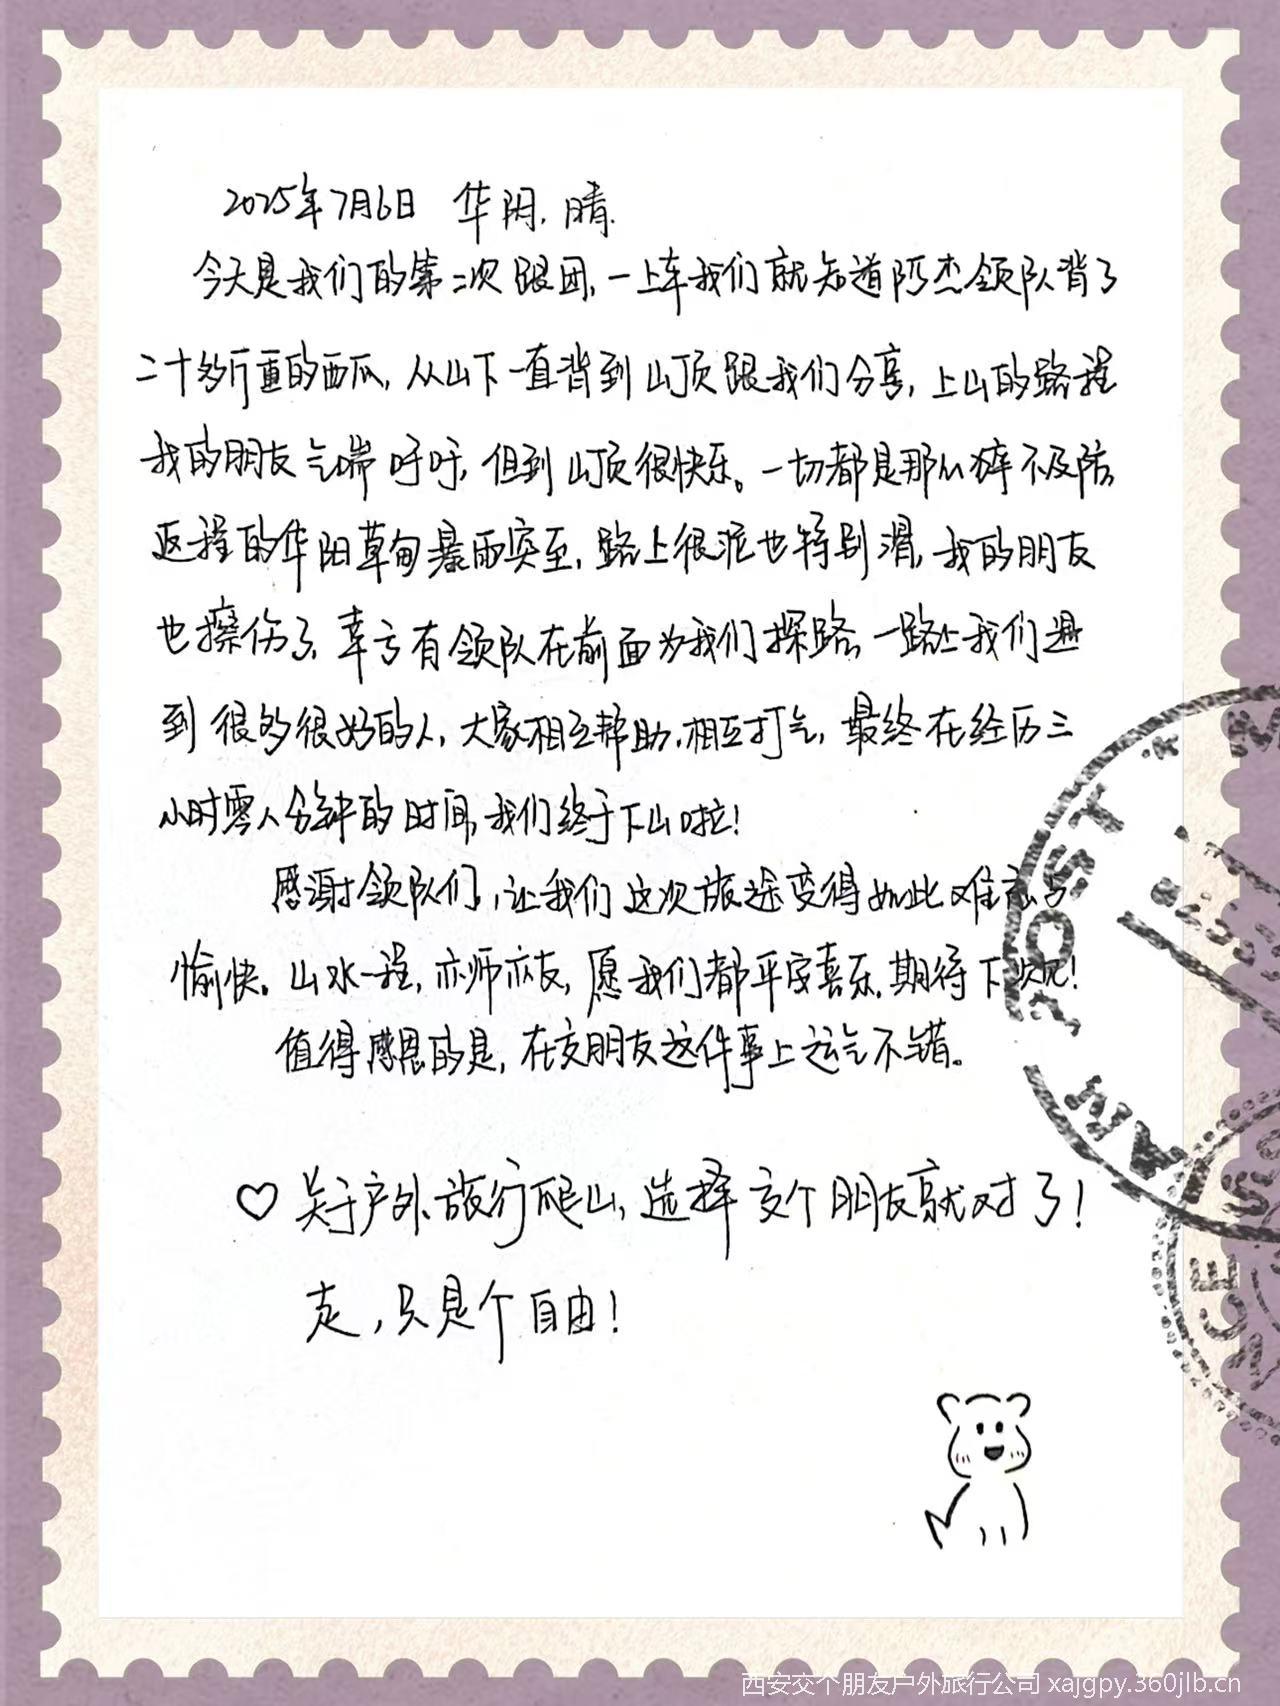 2025年7月6日 华阴.晴.
今天是我们的第二次跟团,一上车我们就知道阿杰领队背了
二十多斤重的西瓜,从山下一直背到山顶跟我们分享,上山的路程
我的朋友气喘吁吁,但到山顶很快乐。一切都是那么猝不及防
返程的华阳草甸暴雨突至,路上很泥也特别滑,我的朋友
也擦伤了,幸亏有领队在前面为我们探路,一路上我们遇
到很多很好的人,大家相互帮助,相互打气,最终在经历三
小时零八分钟的时间,我们终于下山啦!
感谢领队们,让我们这次旅途变得如此难忘与
愉快。山水一程,亦师亦友,愿我们都平安喜乐,期待下次见!
值得感恩的是,在交朋友这件事上运气不错。
♡ 关于户外旅行爬山,选择交个朋友就对了!
走,只是个自由!
POST
西安交个朋友户外旅行公司 xajgpy.360jlb.cn